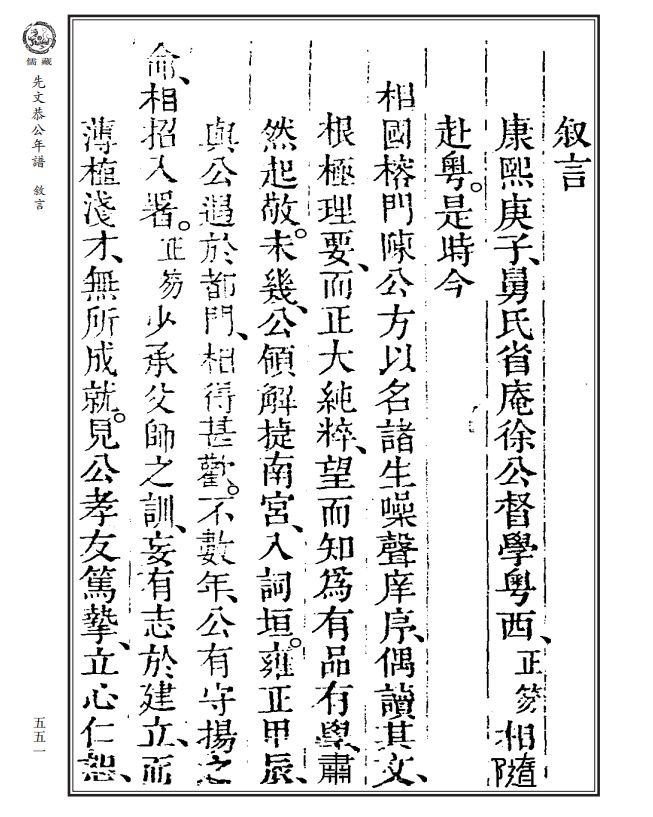 叙言
康熙庚子、舅氏省庵徐公督學粵西、正笏相隨
赴粵。是時今
相國榕門陳公方以名諸生噪聲庠序、偶讀其文、
根極理要、而正大純粹、望而知爲有品有學、肅
然起敬。未幾、公領解捷南宮、入詞垣。雍正甲辰、
與公遇於都門、相得甚歡。不數年、公有守揚之
命、相招入署。正笏少承父師之訓、妄有志於建立、而
薄植淺才、無所成就。見公孝友篤摯、立心仁恕、
儒藏
先文恭公年譜 敘言
五五一